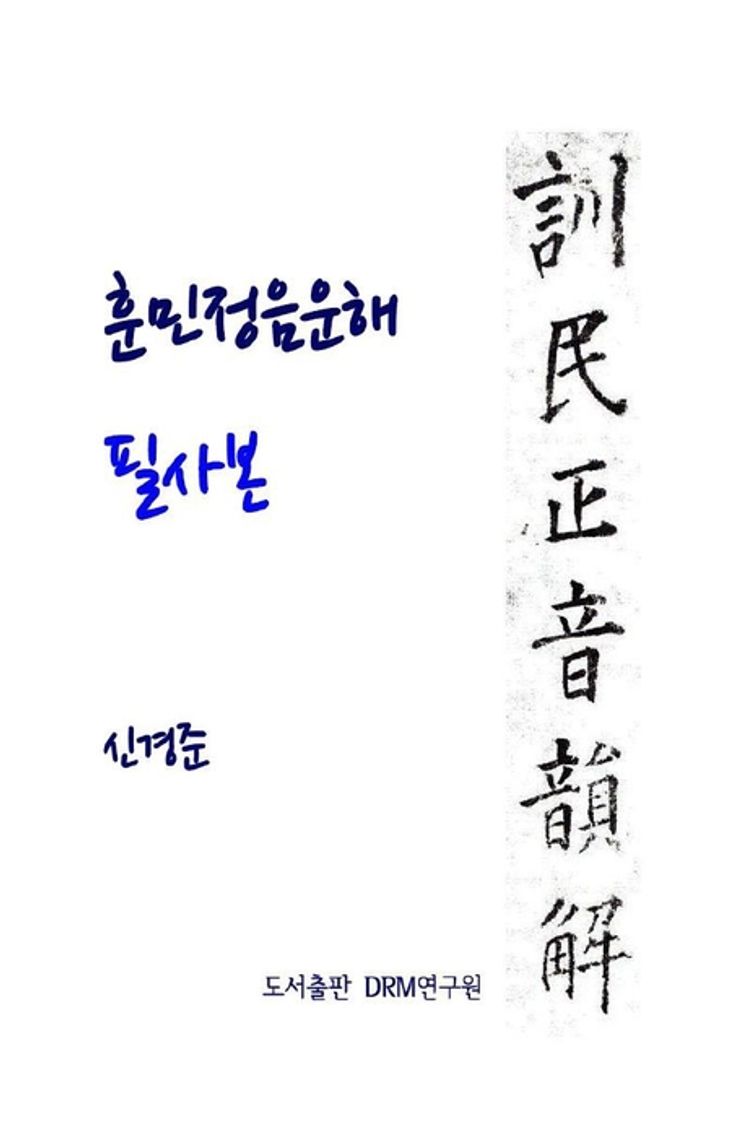 훈민정음운해
필사본
신경준
도서출판 DRM연구원
訓民正音韻解